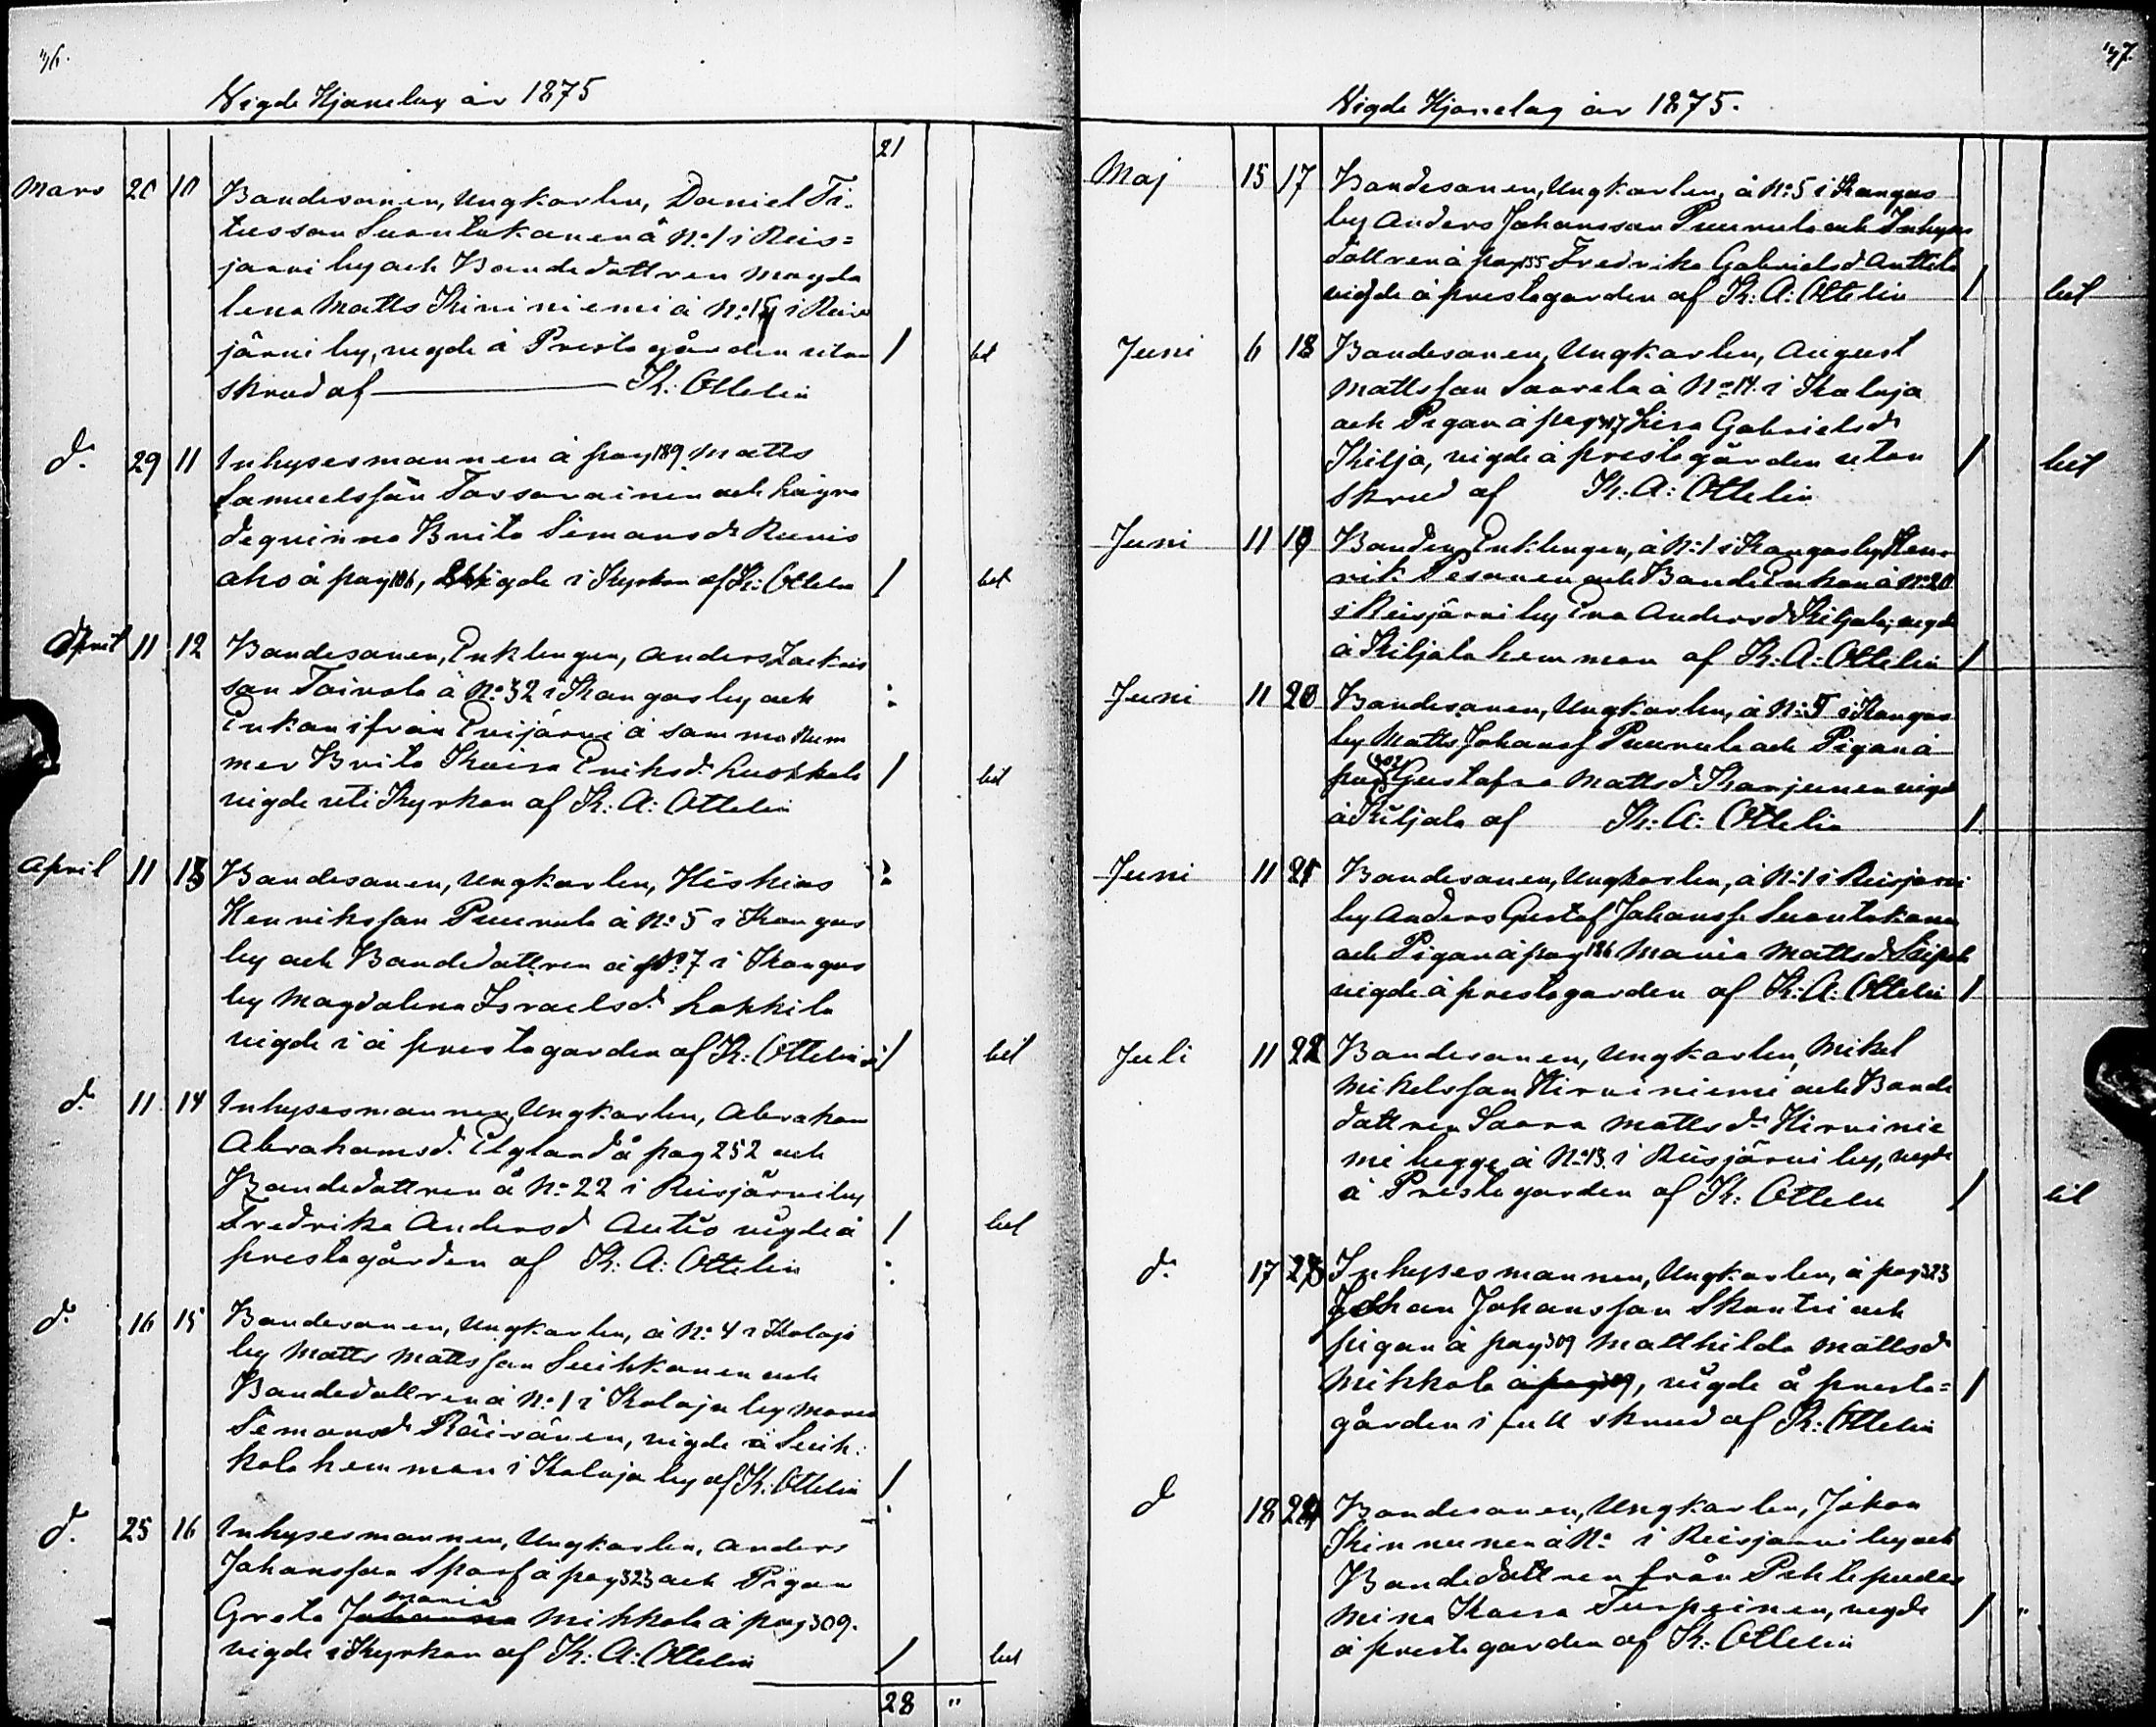 36.
Vigde Hjonelag år 1875
21
Mars 20 10 Bondesonen, Ungkarlen, Daniel Ti-
tusson Suontakanen å No 1 i Reis=
jarvi by och Bondedottren Magda
lena Matts Hirviniemi å No 15 i Reis
järvi by, vigde å Prestegården utan / bet
skrud af K: Ottelin
do 29 11 Inhysesmannen å pag 189 Matts
Samuelsson Tassavainen och Lägra
de qvinna Brita Simonsd. Runis
aho å pag 186, vigde i Kyrkan af K: Ottelin / bet
April 11 12 Bondesonen, Enklingen, Anders Zackris
son Toivola å No 32 i Kangas by och
Enkan ifrån Evijärvi å samma Num
mer Brita Kaisa Eriksd. Luokkala / bet
vigde uti Kyrkan af K: A: Ottelin
April 11 13 Bondesonen, Ungkarlen, Hiskias
Henriksson Puurula å No 5 i Kangas
by och Bondedottren å No 7 i Kangas
by Magdalena Israelsd. Lokkila
vigde i å prestegarden af K: Ottelin / bet
do 11 14 Inhysesmannen, Ungkarlen, Abraham
Abrahamsd. Elgland å pag 252 och
Bondedottren å No 22 i Reisjärvi by
Fredrika Andersd Autio vigde å / bet
prestegården af K: A: Ottelin
do 16 15 Bondesonen, Ungkarlen, å No 4 i Kalaja
by Matts Mattsson Suihkonen och
Bondedottren å No 1 i Kalaja by Maria
Simonsd Räisänen, vigde å Suih-
kola hemman i Kalaja by af K: Ottelin /
do 25 16 Inhysesmannen, Ungkarlen, Anders
Johansson Sparf å pag 323 och Pigan
maria
Greta Johanna Mikkola å pag 309.
vigde i Kyrkan af K: A: Ottelin / bet
28 "
37.
Vigde Hjonelag år 1875.
Maj 15 17 Bondesonen, Ungkarlen, å No 5 i Kangas
by Anders Johansson Puurula och Inhyses
dottren å pag 155 Fredrika Gabrielsd. Anttila
vigde å prestegarden af K: A: Ottelin / bet
Juni 6 18 Bondesonen, Ungkarlen, August
Mattsson Saarela å No 14. i Kalaja
och Pigan å pag 317 Lisa Gabrielsd.
Kilja, vigde å prestegården utan / bet
skrud af K: A: Ottelin
Juni 11 19 Bonden, Enklingen, å No 1 i Kangas by Hen-
rik Pesonen och BondeEnkan å No 20
i Reisjärvi by Eva Andersd. Kiljala, vigde
å Kiljala hemman af K: A: Ottelin /
Juni 11 20 Bondesonen, Ungkarlen, å No 5 i Kangas
by Matts Johanss Puurula och Pigan å
pag Gustafva Mattsd. Karjunen vigd
å Kiljala af K: A: Ottelin /
Juni 11 21 Bondesonen, Ungkarlen, å No 1 i Reisjarvi
by Anders Gustaf Johanss. Suontakanen
och Pigan å pag 186 Maria Mattsd.
vigde å prestegarden af K: A: Ottelin /
Juli 11 22 Bondesonen, Ungkarlen, Mikel
Mikelsson Hirviniemi och Bonde
dottren Saara Mattsd. Hirvinie
mi begge å No 13. i Reisjärvi by, vigde
å Prestegarden af K: Ottelin / bet
do 17 23 Inhysesmannen, Ungkarlen, å pag 323
Johan Johansson Skantzi och
pigan å pag 309 Matthilda Mattsd
Mikkola å pag 309, vigde å preste= /
gården i full skrud af K: Ottelin
do 18 24 Bondesonen, Ungkarlen, Johan
Kinnunen å No i Reisjarvi by och
Bondedottren från Pihtipudas
Mina Kaisa Turpeinen, vigde / "
å prestegarden af K: Ottelin